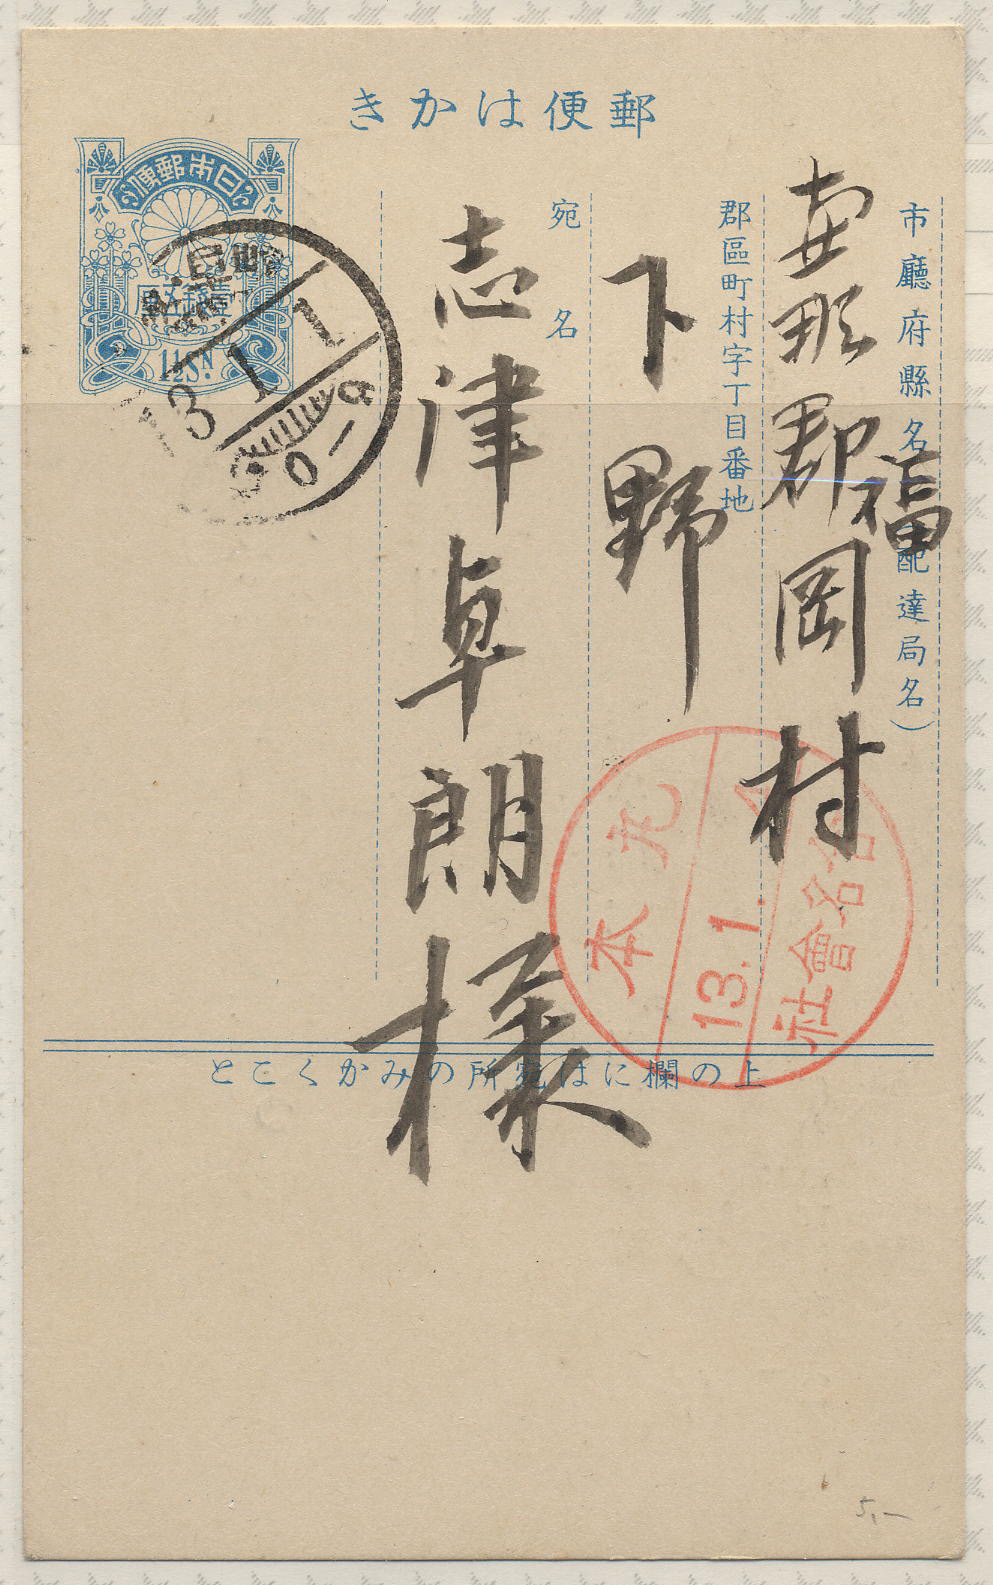 郵便はかき
日本郵便
壹錢五厘
1½Sn.
市廳府縣名(配達局名)
恵那郡福岡村
郡區町村字丁目番地
下野
宛名
志津卓朗様
13 1 1
0-9
合名會社
13.1.
丸本
上の欄には宛所のみかくこと
5,-